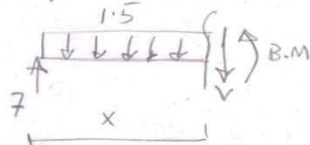 1.5
B.M
V
7
x